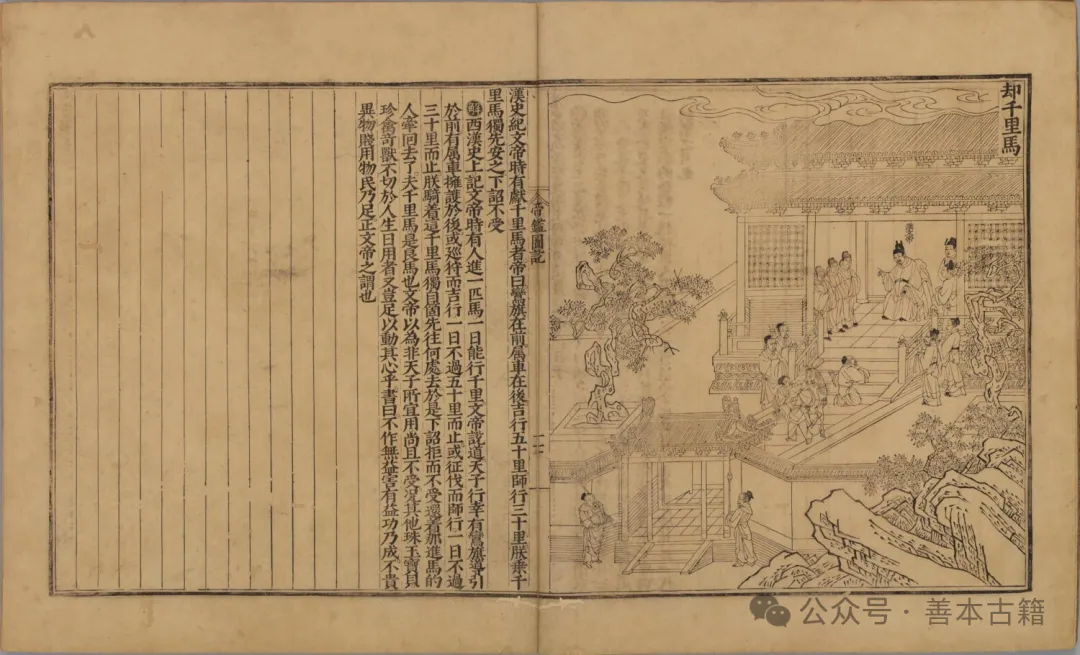 却千里馬
漢文帝
漢史紀文帝時有獻千里馬者帝曰鸞旗在前属車在後吉行五十里師行三十里朕乗千
里馬獨先安之下詔不受
帝鑑圖說
解西漢史上記文帝時有人進一匹馬一日能行千里文帝說道天子行幸有鸞旗導引
於前有属車擁護於後或廵狩而吉行一日不過五十里而止或征伐而師行一日不過
三十里而止朕騎着這千里馬獨自箇先往何處去於是下詔拒而不受還着那進馬的
人牽回去了夫千里馬是良馬也文帝以為非天子所宜用尚且不受况其他珠玉寶貝
珍禽竒獸不切於人生日用者又豈足以動其心乎書曰不作無益害有益功乃成不貴
異物賤用物民乃足正文帝之謂也
公众号·善本古籍